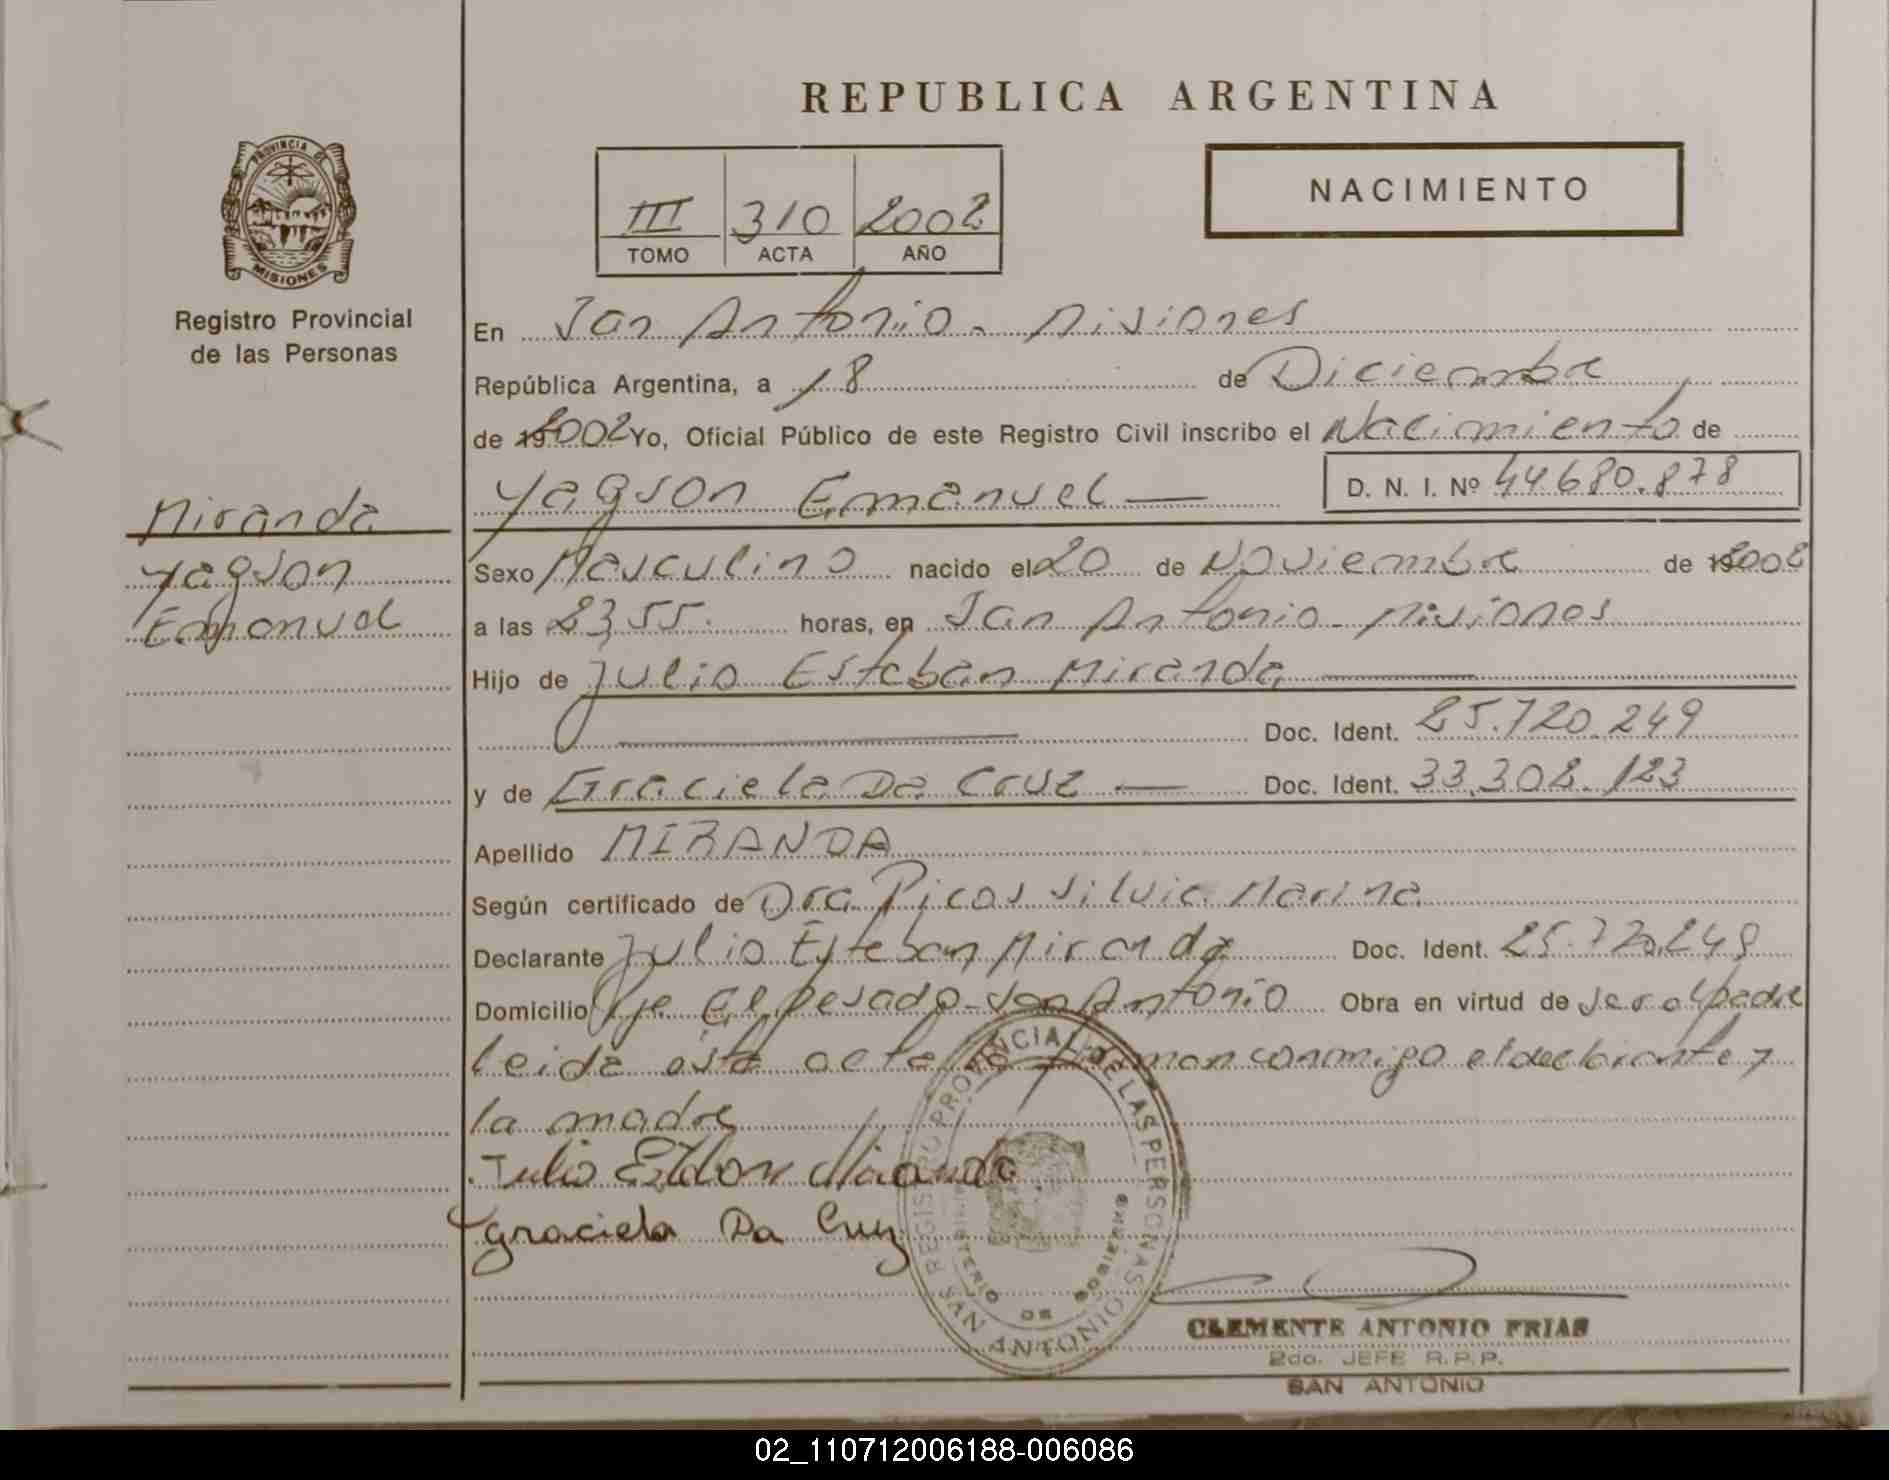 REPUBLICA ARGENTINA
PROVINCIA DE
MISIONES
Registro Provincial
de las Personas
III 310 2002
TOMO ACTA AÑO
NACIMIENTO
En San Antonio - Misiones
República Argentina, a 18 de Diciembre
de 2002 Yo, Oficial Público de este Registro Civil inscribo el Nacimiento de
Yagson Emanuel D. N. I. Nº 44.680.878
Miranda
Yagson
Emanuel
Sexo Masculino nacido el 20 de Noviembre de 2002
a las 23,55. horas, en San Antonio - Misiones
Hijo de Julio Esteban Miranda
Doc. Ident. 25.720.249
y de Graciela Da Cruz Doc. Ident. 33.308.123
Apellido MIRANDA
Según certificado de Dra Picos Silvia Marina
Declarante Julio Esteban Miranda Doc. Ident. 25.720.249
Domicilio Pje El Pesado - San Antonio Obra en virtud de ser el padre
leida esta acta la firman conmigo el declarante y
la madre
Julio Esteban Miranda
Graciela Da Cruz
REGISTRO PROVINCIAL DE LAS PERSONAS
MINISTERIO DE GOBIERNO
SAN ANTONIO
CLEMENTE ANTONIO FRIAS
2do. JEFE R.P.P.
SAN ANTONIO
02_110712006188-006086